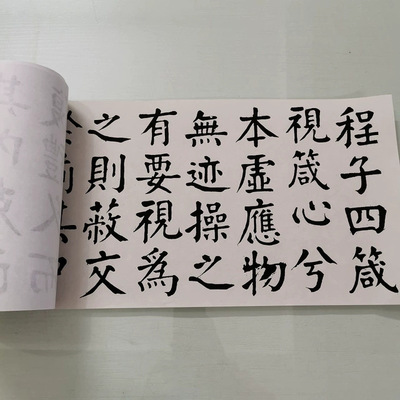 程子四箴
視箴心兮
本虛應物
無迹操之
有要視爲
之則蔽交
前其